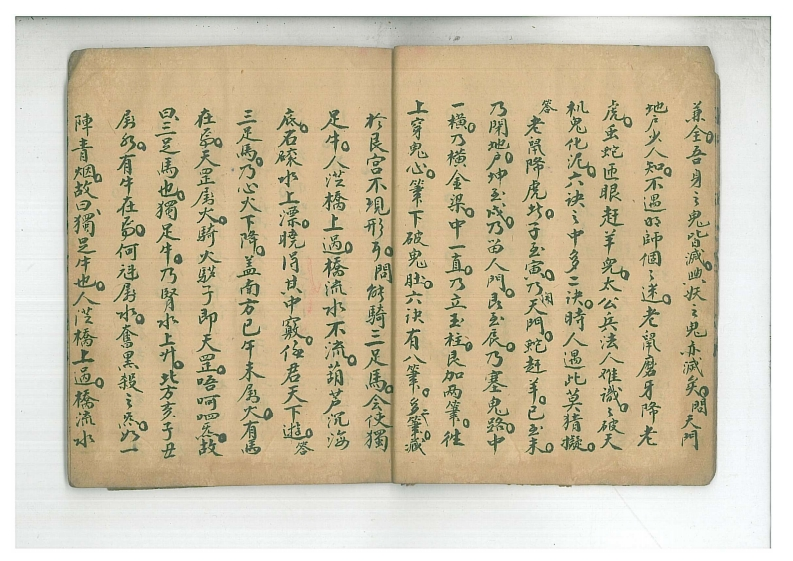 兼全吾身之鬼皆滅幽妖之鬼亦滅矣問天門
地户少人知不遇明師個之迷老鼠磨牙降老
虎蛋蛇匝眼赶羊兒太公兵法人难識之破天
机鬼化泥六诀之中多二诀時人遇此莫猜擬
答老鼠降虎於子至寅乃開天門蛇赶羊已至未
乃閉地户坤至戌乃笛人門艮至辰乃塞鬼路中
一横乃横金梁中一直乃立玉柱艮加两筆往
上穿鬼心筆下破鬼肚六诀有八筆多二筆滅
於艮宫不現形可問能騎三足馬会使獨
足牛人従橋上過橋流水不流葫芦沉海
底石磙水上漂暁得其中竅伩君天下遊答
三足馬乃心火下降盖南方巳午未属火有馬
在焉天罡属火騎火毬子即天罡唔呵呬炁故
曰三足馬也獨足牛乃腎水上升北方亥子丑
属水有牛在焉何詫属水奪黑殺之炁如一
陣青烟故曰獨足牛也人従橋上過橋流水